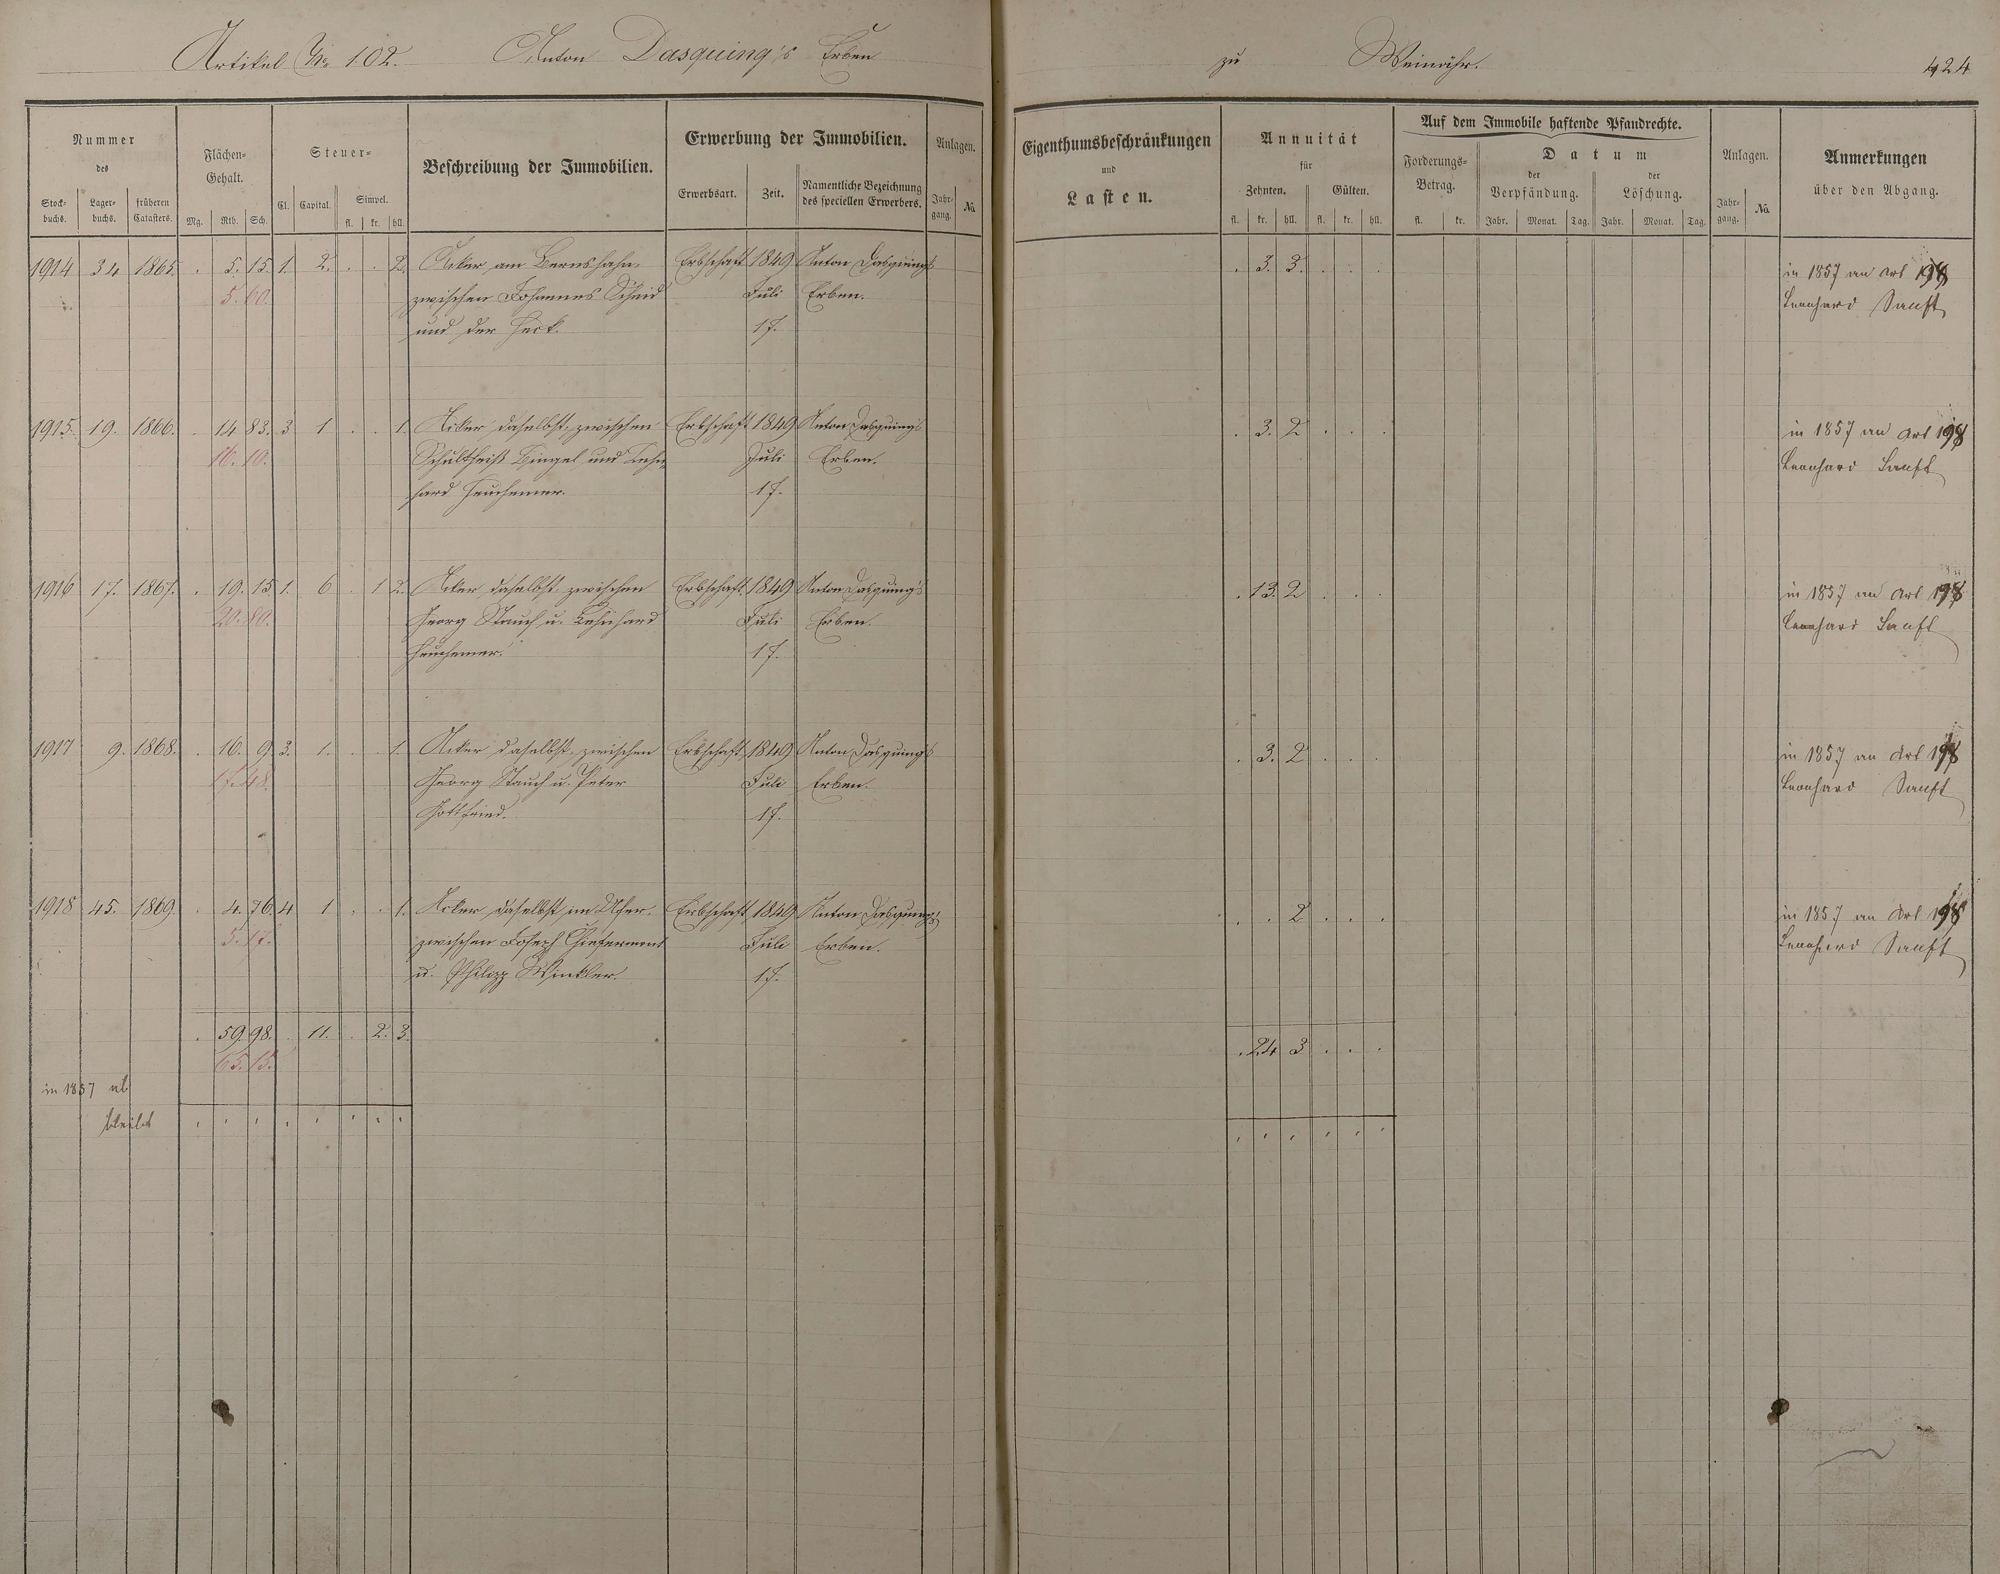 Artikel No 102. Anton Dasquing's Erben zu Weinähr. 424
Nummer
des
Stock-buchs. Lager-buchs. früheren Catasters.
Flächen-Gehalt.
Mg. Rth. Sch.
Steuer-
Cl. Capital. Simpel.
fl. kr. hll.
Beschreibung der Immobilien.
Erwerbung der Immobilien.
Erwerbsart. Zeit. Namentliche Bezeichnung des speciellen Erwerbers.
Anlagen.
Jahr-gang. No.
Eigenthumsbeschränkungen
und
Lasten.
Annuität
für
Zehnten. Gülten.
fl. kr. hll. fl. kr. hll.
Auf dem Immobile haftende Pfandrechte.
Forderungs-Betrag.
fl. kr.
Datum
der Verpfändung. der Löschung.
Jahr. Monat. Tag. Jahr. Monat. Tag.
Anlagen.
Jahr-gang. No.
Anmerkungen
über den Abgang.
1914 34 1865. . 5. 15. 1. 2. . . 2. Acker am Bernshahn, Erbschaft 1849 Anton Dasquing's . 3. 3. . . . in 1857 an Art 198
5. 60. zwischen Johannes Scheid Juli Erben. Leonhard Sanft
und der Heck. 17.
1915. 19. 1866. . 14 83. 3 1 . . 1. Acker daselbst, zwischen Erbschaft 1849 Anton Dasquing's . 3. 2 . . . in 1857 an Art 198
16. 10. Schultheiß Bingel und Lehn- Juli Erben. Leonhard Sanft
hard Heuchemer. 17.
1916 17. 1867. . 19. 15 1. 6 . 1 2. Acker daselbst, zwischen Erbschaft. 1849 Anton Dasquing's . 13. 2 . . . in 1857 an Art 198
20. 80. Georg Stauch u. Lehnhard Juli Erben. Leonhard Sanft
Heuchemer. 17.
1917 9. 1868. . 16. 9 3. 1. . . 1. Acker daselbst, zwischen Erbschaft 1849 Anton Dasquing's . 3. 2 . . . in 1857 an Art 198
17. 48. Georg Stauch u. Peter Juli Erben. Leonhard Sanft
Gottfried. 17.
1918 45. 1869 . 4. 76. 4 1 . . 1. Acker daselbst im Ufer, Erbschaft 1849 Anton Dasquing's . . 2 . . . in 1857 an Art 198
5. 17. zwischen Joseph Juli Erben. Leonhard Sanft
u. Philipp Winkler. 17.
. 59. 98. . 11. . 2. 3. . 24 3 . . .
65. 15.
in 1857 ab
bleibt